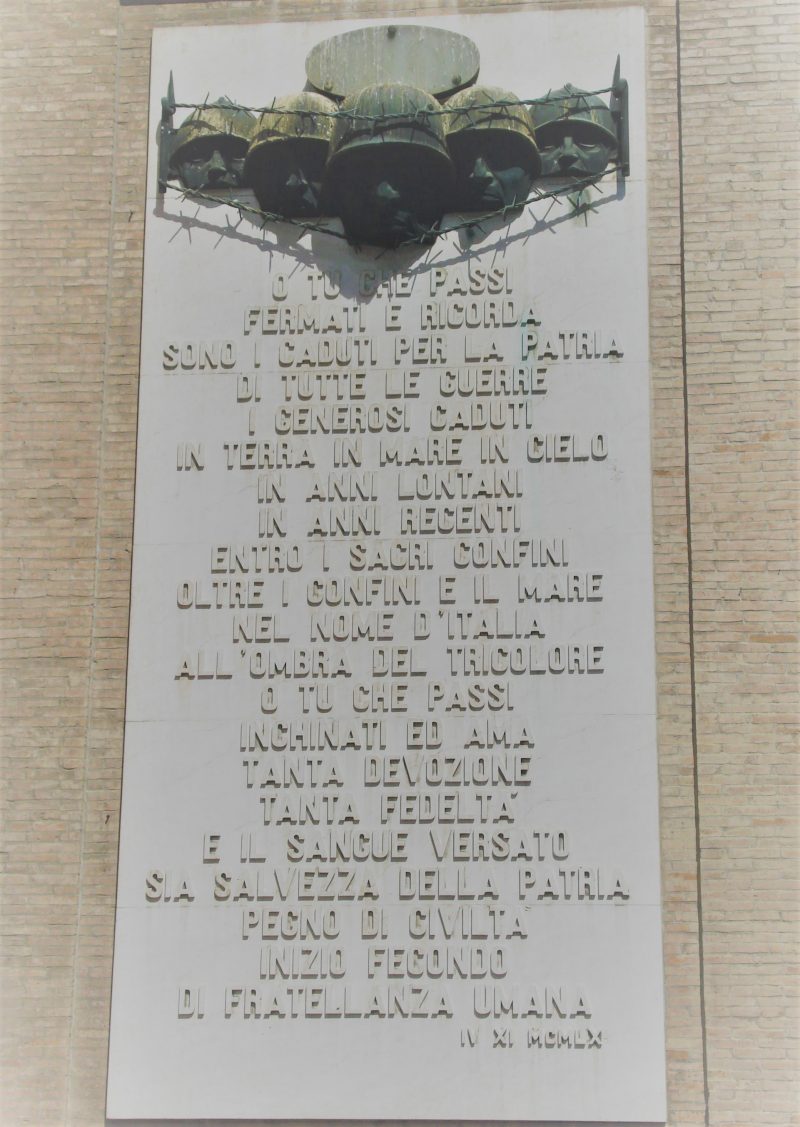 O TU CHE PASSI
FERMATI E RICORDA
SONO I CADUTI PER LA PATRIA
DI TUTTE LE GUERRE
I GENEROSI CADUTI
IN TERRA IN MARE IN CIELO
IN ANNI LONTANI
IN ANNI RECENTI
ENTRO I SACRI CONFINI
OLTRE I CONFINI E IL MARE
NEL NOME D'ITALIA
ALL'OMBRA DEL TRICOLORE
O TU CHE PASSI
INCHINATI ED AMA
TANTA DEVOZIONE
TANTA FEDELTA'
E IL SANGUE VERSATO
SIA SALVEZZA DELLA PATRIA
PEGNO DI CIVILTA'
INIZIO FECONDO
DI FRATELLANZA UMANA
IV XI MCMLX